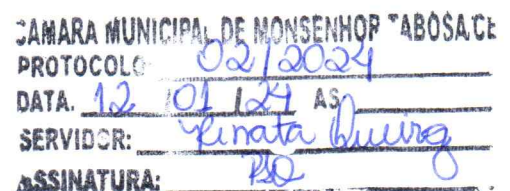 CAMARA MUNICIPAL DE MONSENHOR TABOSA/CE
PROTOCOLO 02/2024
DATA. 12 /01 /24 AS
SERVIDOR: Renata Queiroz
ASSINATURA: